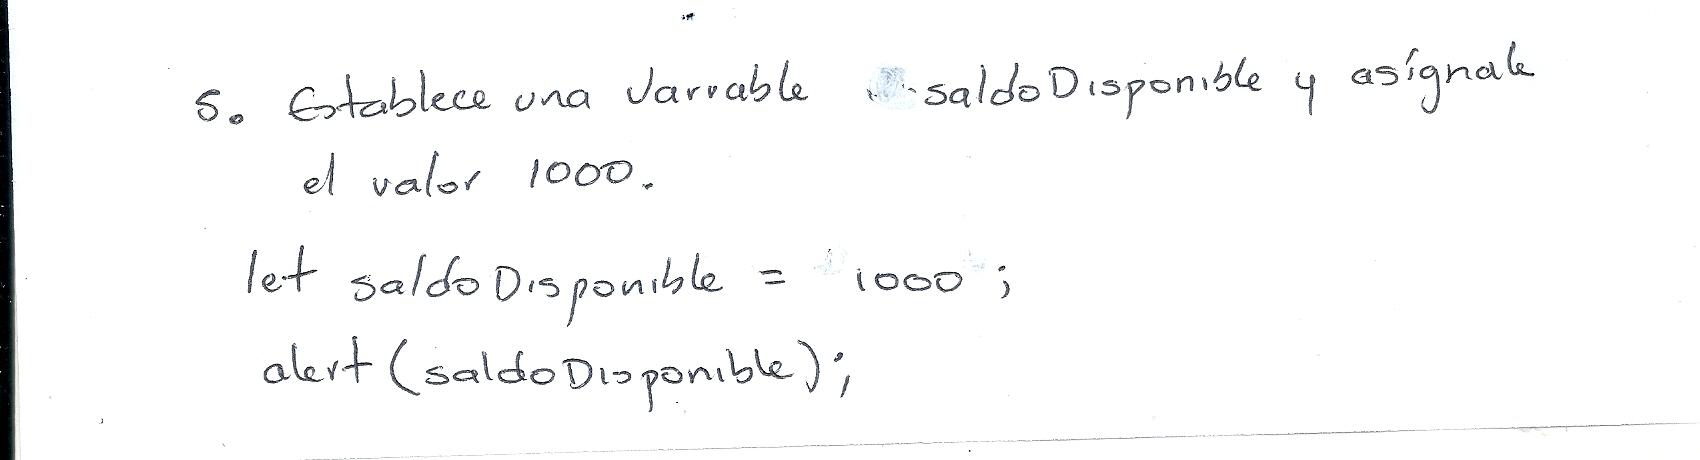 5. Establece una variable saldoDisponible y asígnale
el valor 1000.
let saldoDisponible = 1000;
alert(saldoDisponible);